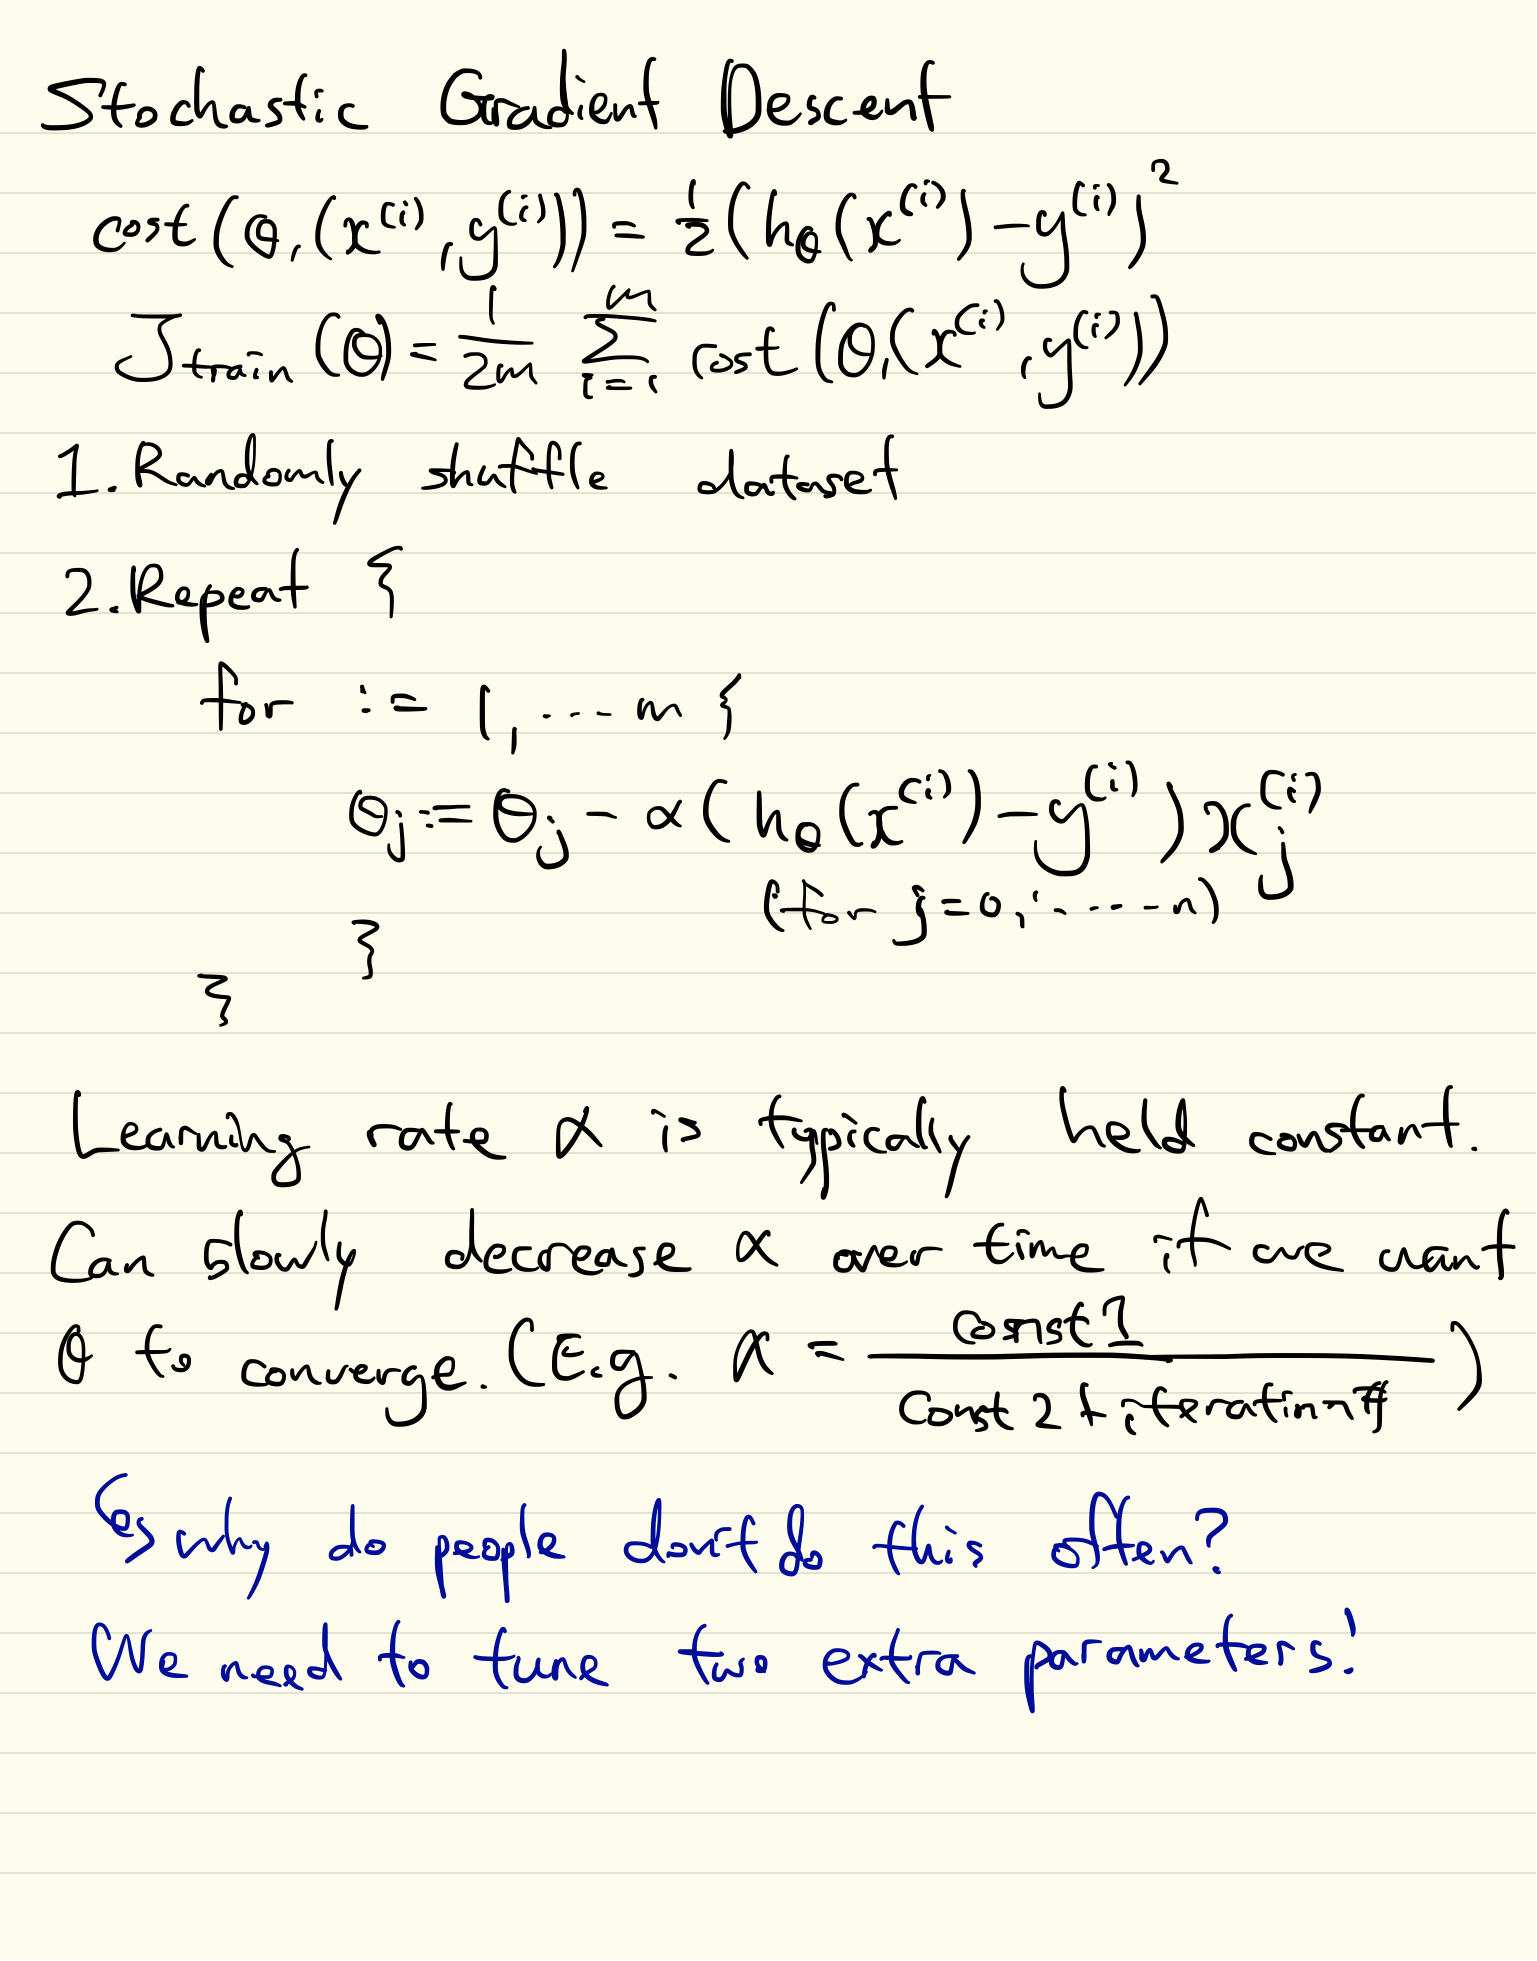 Stochastic Gradient Descent
cost(θ, (x^(i), y^(i))) = 1/2 (h_θ(x^(i)) - y^(i))^2
J_train(θ) = 1/2m Σ_{i=1}^{m} cost(θ, (x^(i), y^(i)))
1. Randomly shuffle dataset
2. Repeat {
for := 1, ... m {
θ_j := θ_j - α(h_θ(x^(i)) - y^(i)) x_j^(i)
(for j=0, ..... n)
}
}
Learning rate α is typically held constant.
Can slowly decrease α over time if we want
θ to converge. (E.g. α = const1 / const2 + iteration#)
↳ why do people don't do this often?
We need to tune two extra parameters!